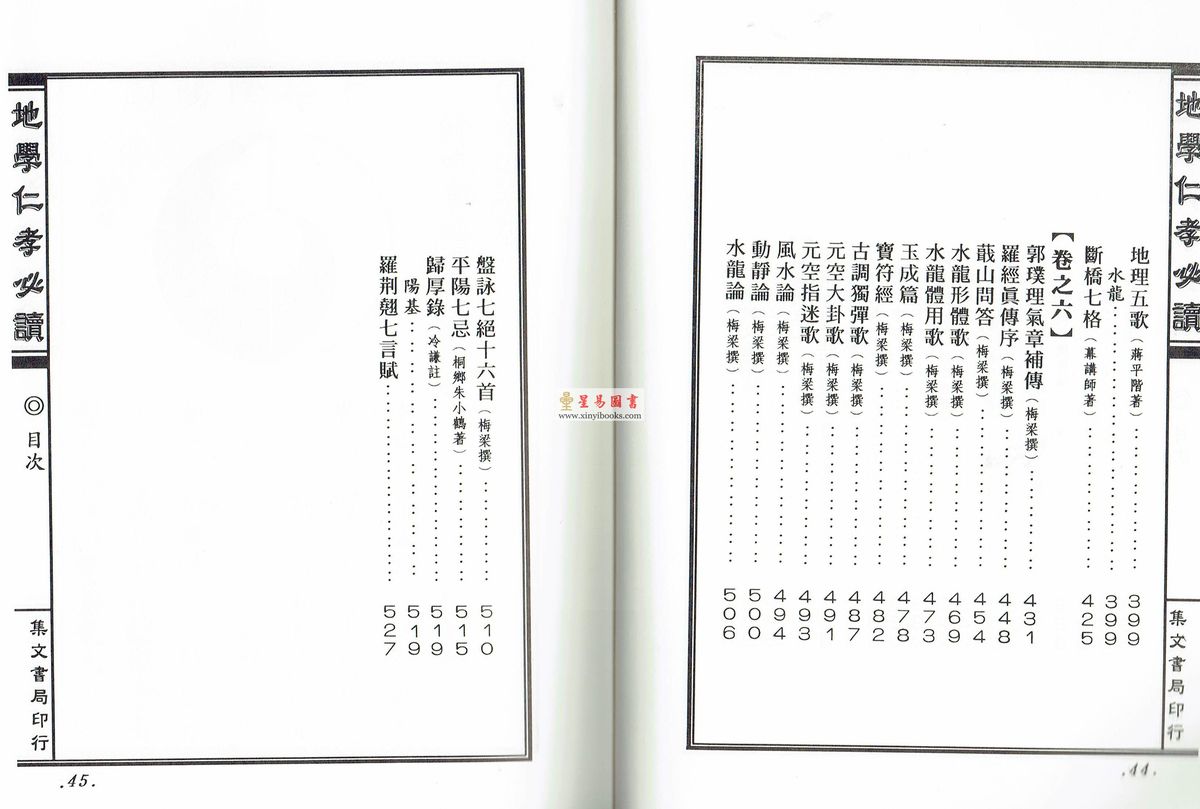 地學仁孝必讀
地理五歌（蔣平階著）……399
水龍……399
斷橋七格（幕講師著）……425
【卷之六】
郭璞理氣章補傳（梅梁撰）……431
羅經眞傳序（梅梁撰）……448
蕺山問答（梅梁撰）……454
水龍形體歌（梅梁撰）……469
水龍體用歌（梅梁撰）……473
玉成篇（梅梁撰）……478
寶符經（梅梁撰）……482
古調獨彈歌（梅梁撰）……487
元空大卦歌（梅梁撰）……491
元空指迷歌（梅梁撰）……493
風水論（梅梁撰）……494
動靜論（梅梁撰）……500
水龍論（梅梁撰）……506
集文書局印行
.44.
星易圖書
www.xinyibooks.com
盤詠七絕十六首（梅梁撰）……510
平陽七忌（桐鄉朱小鶴著）……515
歸厚錄（冷謙註）……519
陽基……519
羅荆翹七言賦……527
地學仁孝必讀
◎目次
集文書局印行
.45.